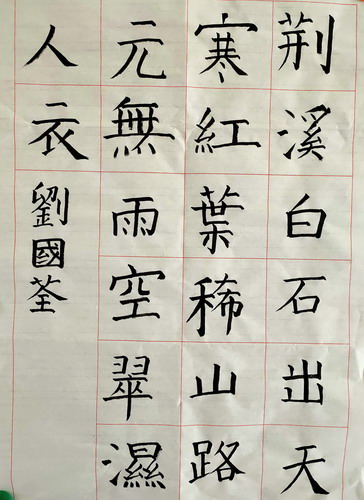 荆溪白石出天
寒紅葉稀山路
元無雨空翠濕
人衣
劉國荃